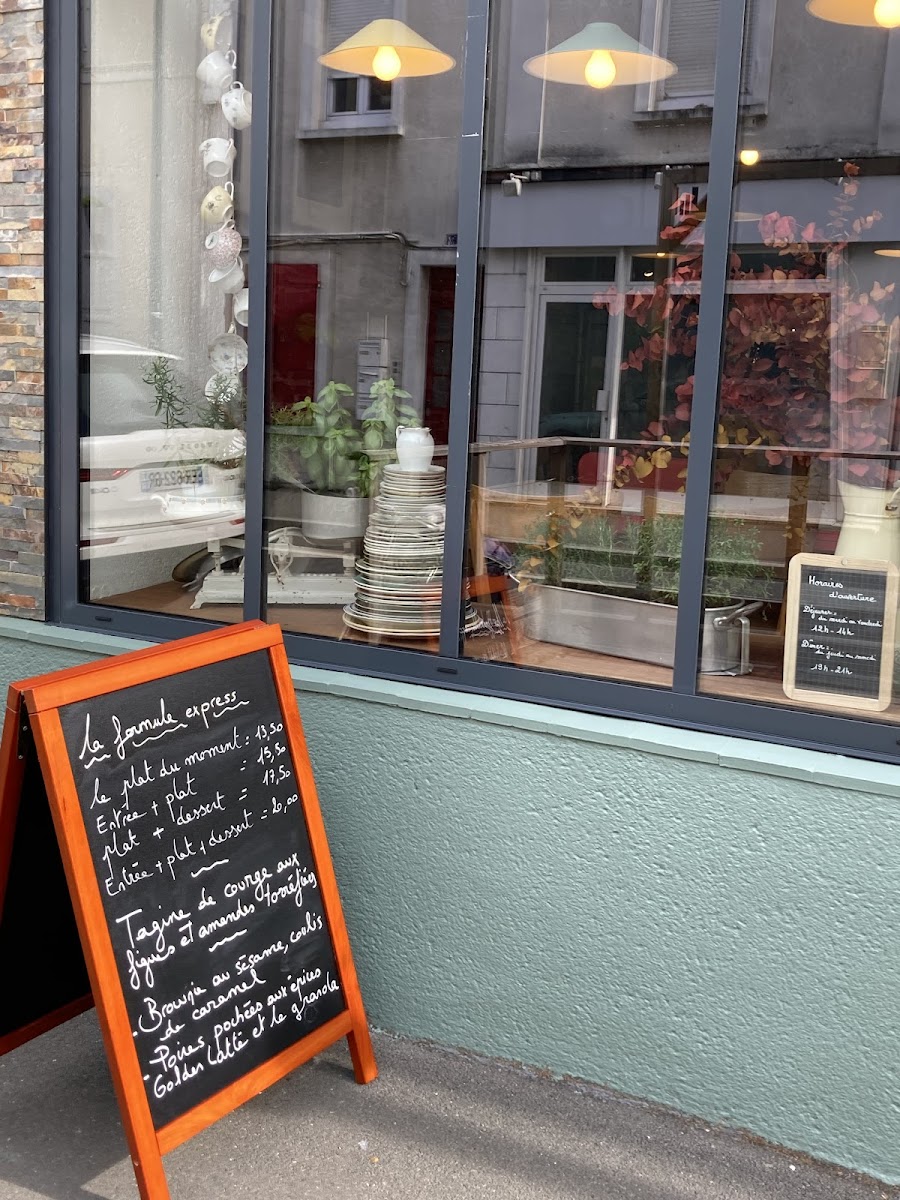 la formule express
le plat du moment : 13,50
Entrée + plat = 15,50
plat + dessert = 17,50
Entrée + plat + dessert = 20,00
Tagine de courge aux
figues et amandes torréfiées
- Brownie au sésame, coulis
de caramel
- Poires pochées aux épices
Golden Latté et le granola
Horaires
d'ouverture
Déjeuner :
du mardi au vendredi
12h - 14h
Dîner :
du jeudi au samedi
19h - 21h